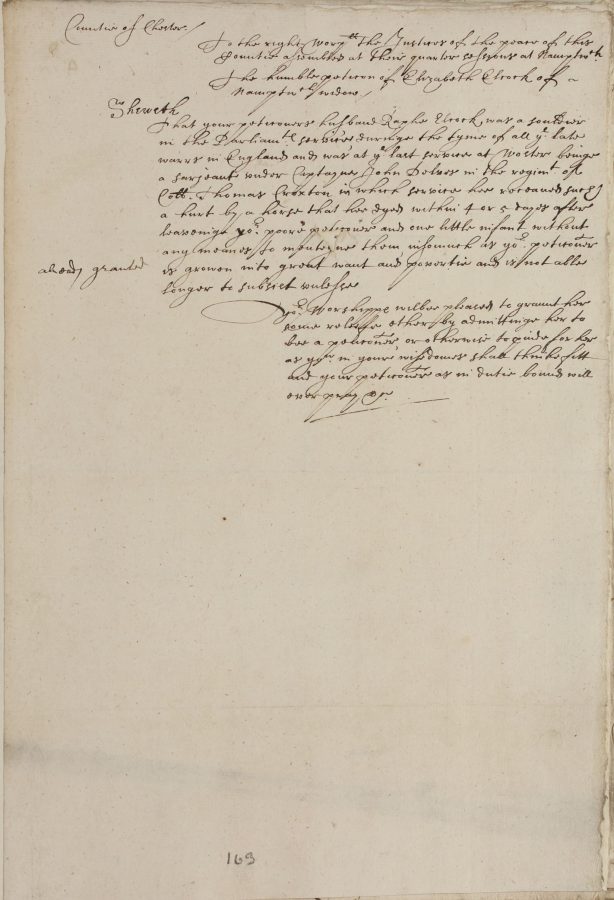 Countie of Chester /
To the right Worpll the Justices of the peace of this
Countie assembled at their quarter sessions at Namptwch
The humble peticon of Elizabeth Elcock of
Namptwch widow /
Sheweth
That your peticoners husband Raphe Elcock was a souldier
in the Parliamts service duringe the tyme of all ye late
warrs in England and was at ye last service at Worster beinge
a sarjeant under Captayne John Delves in the regimt of
Coll: Thomas Croxton in which service hee receaved such
a hurt by a horse that hee dyed within 4 or 5 dayes after
leaveinge yor: poore peticoner and one little infant without
any meanes to mainteine them insomuch as yor: peticoner
is growen into great want and povertie and is not able
already granted
longer to subsist unlesse
yor: Worshipps wilbee pleased to graunt her
some releife either by admittinge her to
bee a peticoner or otherwise to pvide for her
as yow in your wisdomes shall thinke fitt
and your peticoner as in dutie bound will
ever pray &c
163